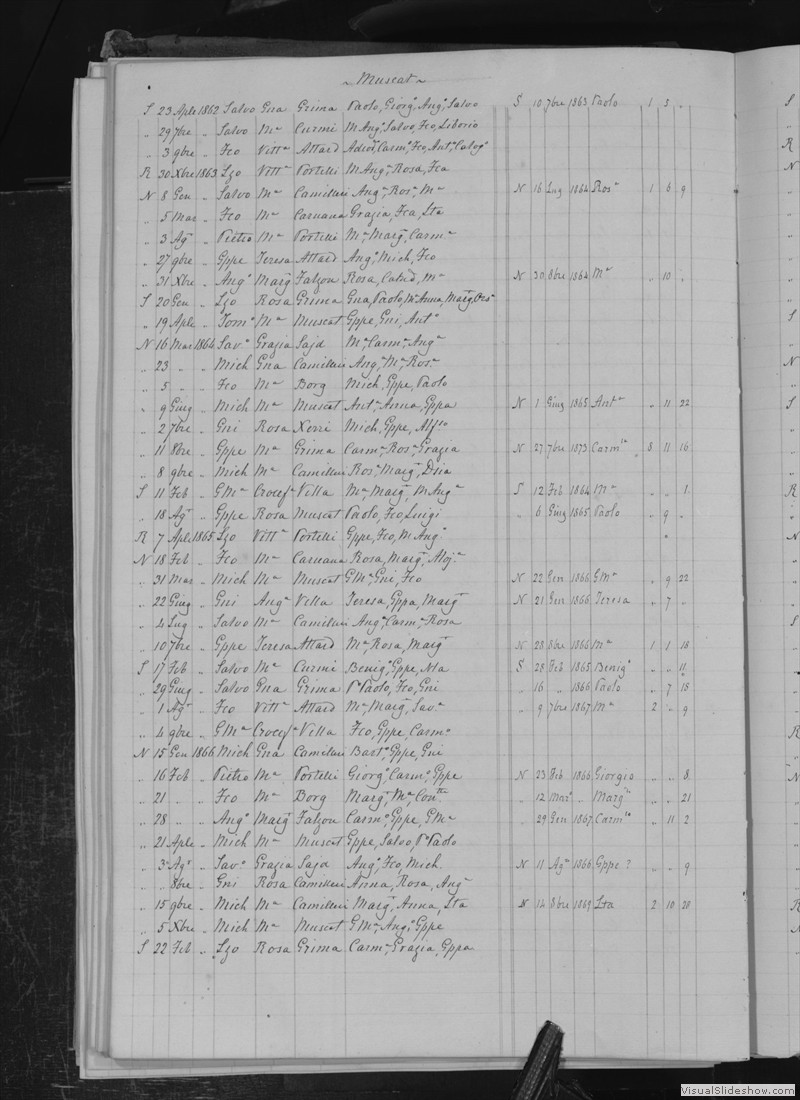 ~ Muscat ~
S 23 Aple 1862 Salvo Gna Grima Paolo, Giorgo, Ango, Salvo S 10 7bre 1863 Paolo 1 3 "
" 29 7bre " Salvo Ma Curmi M Ango, Salvo, Fco, Liborio
" 3 9bre " Fco Vitta Attard Carmo, Fco, Anto, Calogo
R 30 Xbre 1863 Lzo Vitta Portelli M Anga, Rosa, Fca
N 8 Gen " Salvo Ma Camilleri Anga, Rosa, Ma N 16 Lug 1864 Rosa 1 6 9
" 5 Mar " Fco Ma Caruana Grazia, Fca, Sta
" 3 Ago " Pietro Ma Portelli Ma, Marga, Carma
" 27 9bre " Gppe Teresa Attard Ango, Mich, Fco
" 31 Xbre " Ango Marga Falzon Rosa, Catad, Ma N 30 8bre 1864 Ma " 10 "
S 20 Gen " Lzo Rosa Grima Gna, Paolo, Ma Anna, Marga,
" 19 Aple " Tomo Ma Muscat Gppe, Gni, Anto
N 16 Mar 1864 Savo Grazia Sajd Ma, Carma, Anga
" 23 " " Mich Gna Camilleri Anga, Ma, Rosa
" 5 " " Fco Ma Borg Mich, Gppe, Paolo
" 9 Giug " Mich Ma Muscat Anta, Anna, Gppa N 1 Giug 1865 Anta " 11 22
" 2 7bre " Gni Rosa Xerri Mich, Gppe, Alfso
" 11 8bre " Gppe Ma Grima Carma, Rosa, Grazia N 27 7bre 1873 Carmla 8 11 16
" 8 9bre " Mich Ma Camilleri Rosa, Marga,
S 11 Feb " GMa Crocefa Villa Ma, Marga, M Anga S 12 Feb 1864 Ma " " 1
" 18 Ago " Gppe Rosa Muscat Paolo, Fco, Luigi " 6 Giug 1865 Paolo " 9 "
R 7 Aple 1865 Lzo Vitta Portelli Gppe, Fco, M Ango
N 18 Feb " Fco Ma Caruana Rosa, Marga, Aloja
" 31 Mar " Mich Ma Muscat GMa, Gni, Fco N 22 Gen 1866 GMa " 9 22
" 22 Giug " Gni Anga Villa Teresa, Gppa, Marga N 21 Gen 1866 Teresa " 7 "
" 4 Lug " Salvo Ma Camilleri Anga, Carma, Rosa
" 10 7bre " Gppe Teresa Attard Ma, Rosa, Marga N 28 8bre 1866 Ma 1 1 18
S 17 Feb " Salvo Ma Curmi Benigo, Gppe, Nla S 28 Feb 1865 Benigo " " 11
" 29 Giug " Salvo Gna Grima Po Paolo, Fco, Gni " 16 " 1866 Paolo " 7 18
" 1 Ago " Fco Vitta Attard Ma, Marga, Sava " 9 7bre 1867 Ma 2 " 9
" 4 9bre " GMa Crocefa Villa Fco, Gppe, Carmo
N 15 Gen 1866 Mich Gna Camilleri Barto, Gppe, Gni
" 16 Feb " Pietro Ma Portelli Giorgo, Carmo, Gppe N 23 Feb 1866 Giorgio " " 8
" 21 " " Fco Ma Borg Marga, Ma, Contta " 12 Marzo " Margta " " 21
" 28 " " Ango Marga Falzon Carmo, Gppe, GMa " 29 Gen 1867 Carmlo " 11 2
" 21 Aple " Mich Ma Muscat Gppe, Salvo, Po Paolo
" 3 Ago " Savo Grazia Sajd Ango, Fco, Mich. N 11 Ago 1866 Gppe ? " " 9
" " 8bre " Gni Rosa Camilleri Anna, Rosa, Anga
" 15 9bre " Mich Ma Camilleri Marga, Anna, Sta N 14 8bre 1869 Sta 2 10 28
" 5 Xbre " Mich Ma Muscat GMa, Ango, Gppe
S 22 Feb " Lzo Rosa Grima Carma, Grazia, Gppa
VisualSlideshow.com